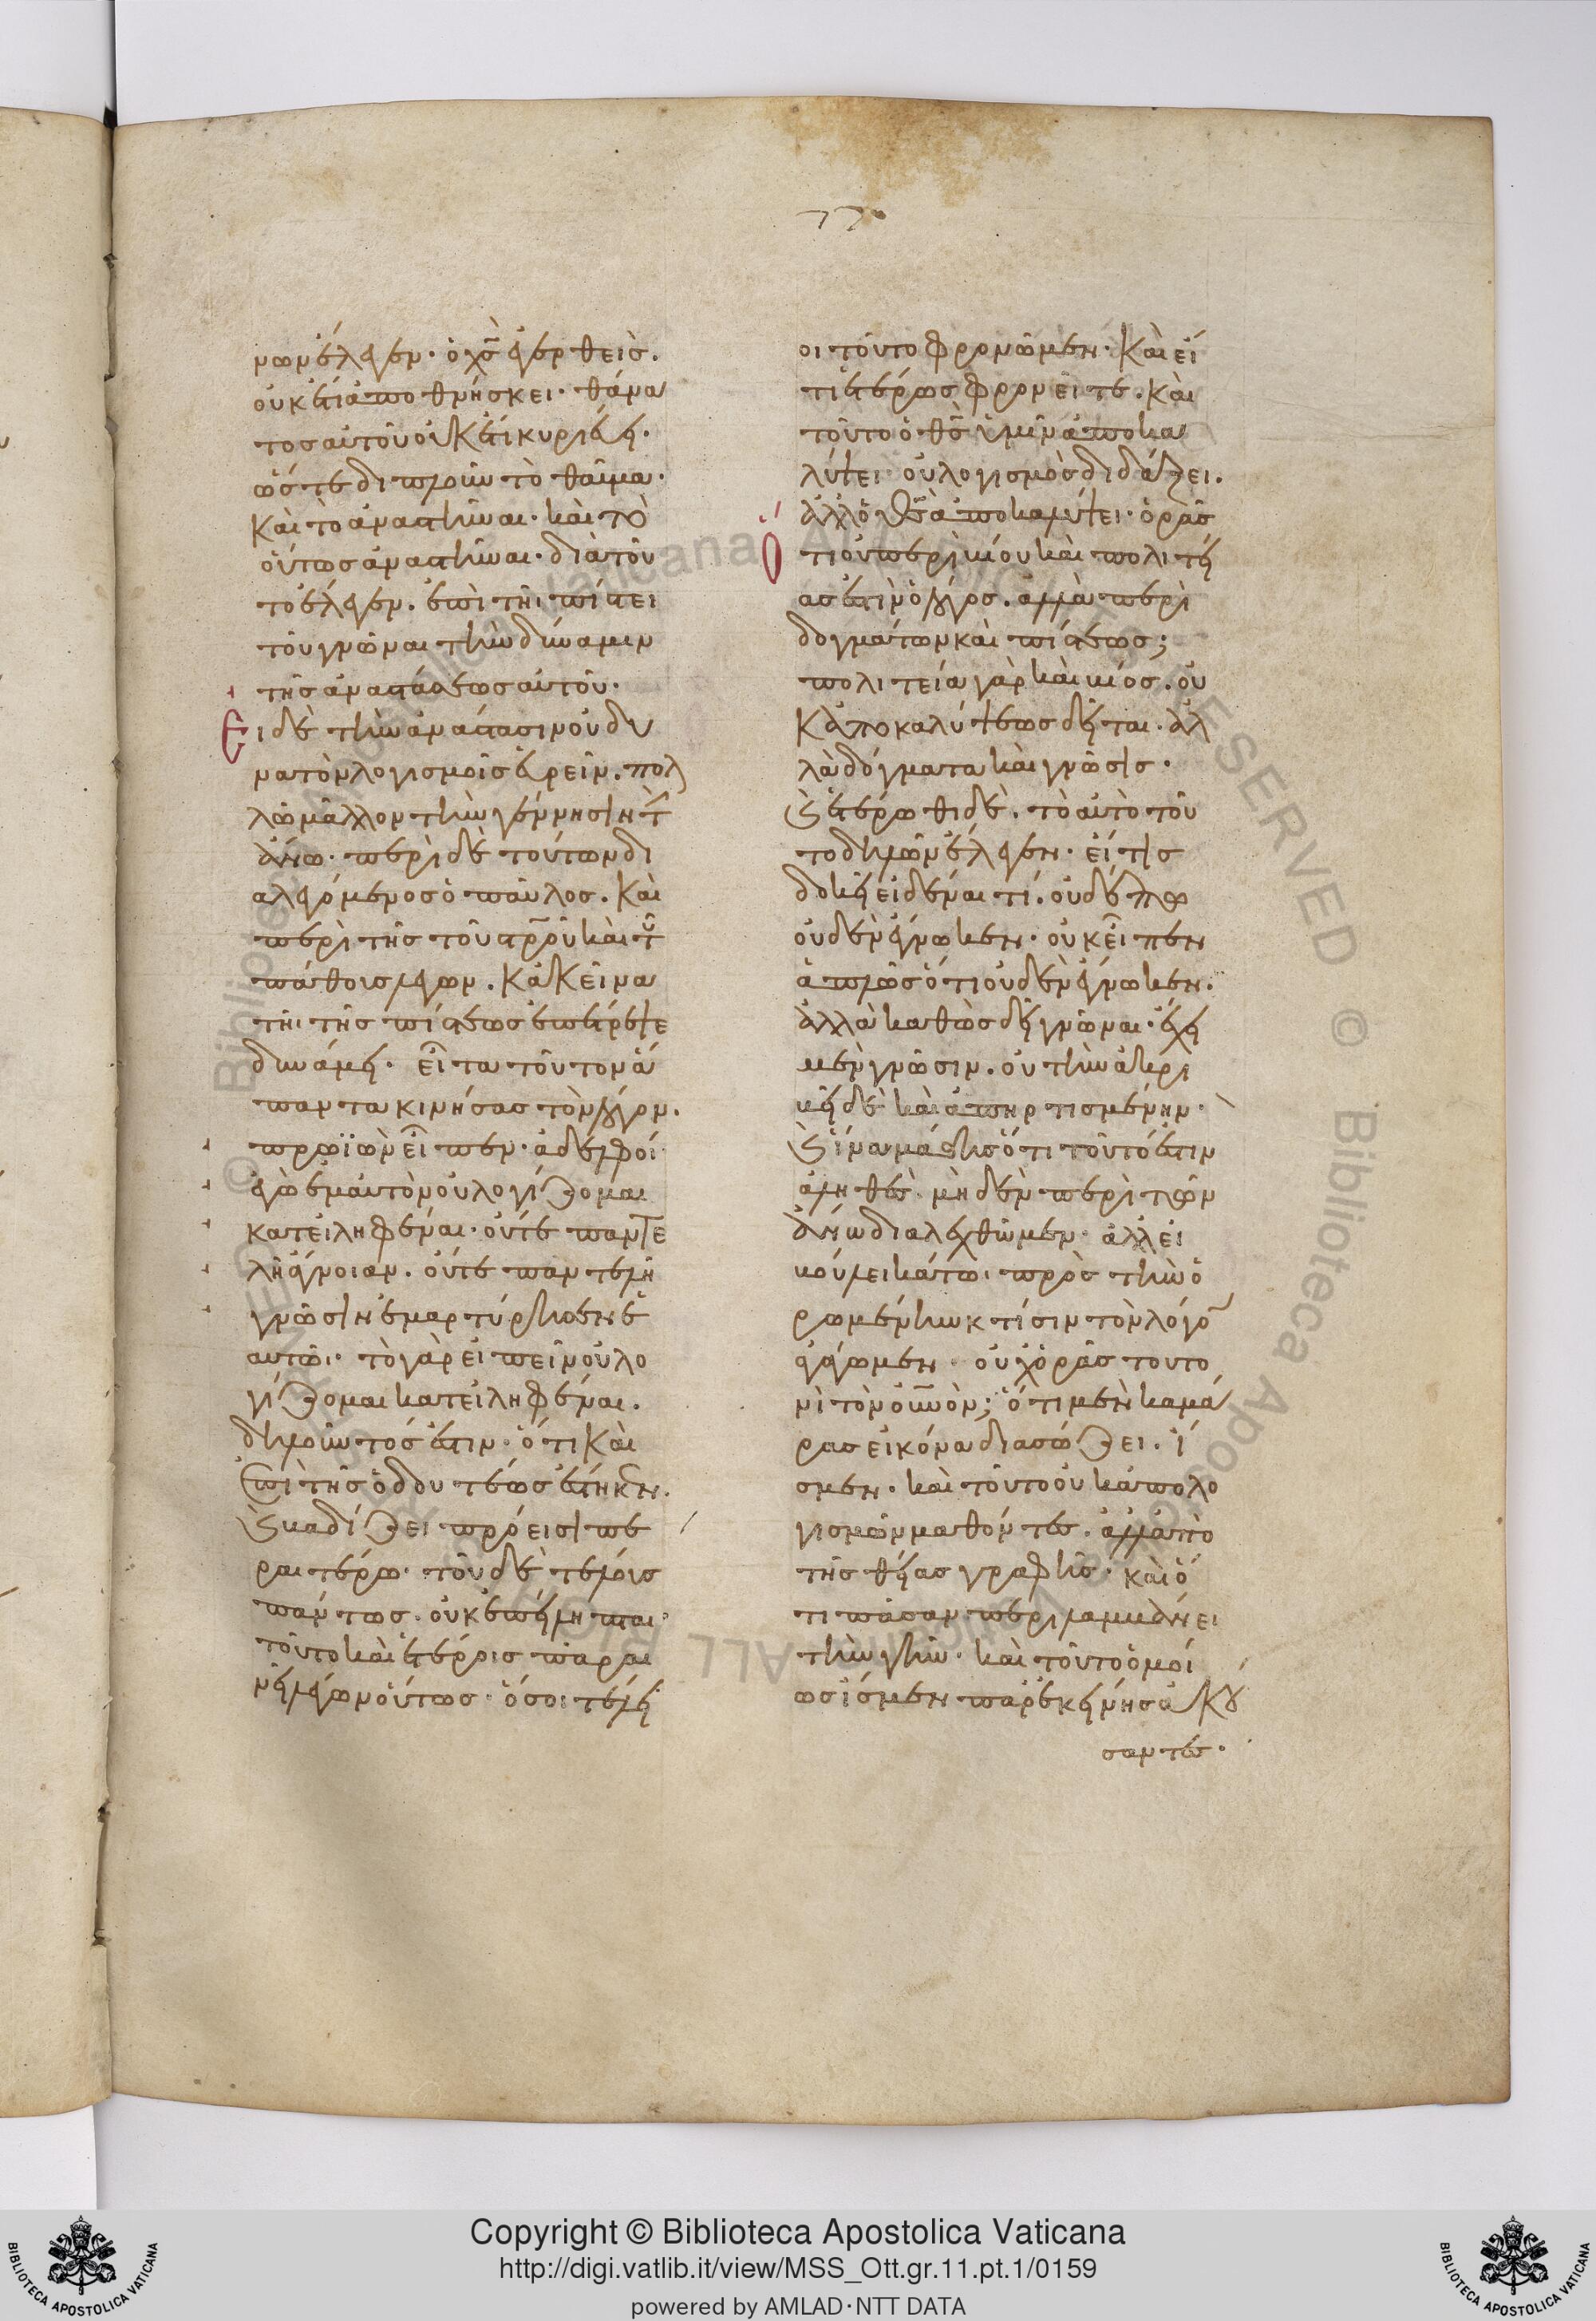 νων ἔλεγεν· ὁ χς ἐγερθεὶς.
οὐκέτι ἀποθνήσκει· θάνα
τος αὐτοῦ οὐκέτι κυριεύει·
ὥστε διπλοῦν τὸ θαῦμα·
καὶ τὸ ἀναστῆναι· καὶ τὸ
οὕτως ἀναστῆναι· διὰ τοῦ
το ἔλεγεν. ἐπὶ τῆι πίστει
τοῦ γνῶναι τὴν δύναμιν
τῆς ἀναστάσεως αὐτοῦ·
Εἰ δὲ τὴν ἀνάστασιν οὐ δυ
νατὸν λογισμοῖς εὑρεῖν. πολ
λῶ μᾶλλον τὴν γέννησιν τὴν
ἄνω· περὶ δὲ τούτων δι
αλεγόμενος ὁ παῦλος. καὶ
περὶ τῆς τοῦ στροῦ καὶ τοῦ
πάθους λέγων. κἀκεῖνα
τῆι τῆς πίστεως ἐπέτρεψε
δυνάμει· εἶτα τοῦτον ἅ
παντα κινήσας τὸν λόγον.
προϊὼν εἶπεν· ἀδελφοί
ἐγὼ ἐμαυτὸν οὐ λογίζομαι
κατειληφέναι· οὔτε παντε
λῆ ἄγνοιαν. οὔτε παντελῆ
γνῶσιν ἐμαρτύρησεν ἑ
αυτῶι· τὸ γὰρ εἰπεῖν οὐ λο
γίζομαι κατειληφέναι.
δηλοῦντός ἐστιν· ὅτι καὶ
ἐπὶ τῆς ὁδοῦ τέως ἕστηκεν.
καὶ βαδίζει πρόεισι πε
ραιτέρω· τοῦ δὲ τέλους
πάντως. οὐκ ἐπείληπται·
τοῦτο καὶ ἑτέροις παραι
νεῖ λέγων οὕτως· ὅσοι τέλει
οι τοῦτο φρονῶμεν· καὶ εἴ
τι ἑτέρως φρονεῖτε. καὶ
τοῦτο ὁ θς ὑμῖν ἀποκα
λύψει· οὐ λογισμὸς διδάξει.
ἀλλ' ὁ θς ἀποκαλύψει· ὁρᾶς
ὅτι οὐ περὶ βίου καὶ πολιτεί
ας ἐστὶν ὁ λόγος. ἀλλὰ περὶ
δογμάτων καὶ πίστεως;
πολιτεία γὰρ καὶ βίος. οὐ
κ ἀποκαλύψεως δεῖται· ἀλ
λὰ δόγματα καὶ γνῶσις·
καὶ ἑτέρωθι δὲ. τὸ αὐτὸ τοῦ
το δηλῶν ἔλεγεν· εἴ τις
δοκεῖ εἰδέναι τί. οὐδέπω
οὐδὲν ἔγνωκεν· οὐκ εἶπεν
ἁπλῶς ὅτι οὐδὲν ἔγνωκεν·
ἀλλὰ καθὼς δεῖ γνῶναι· ἔχει
μὲν γνῶσιν. οὐ τὴν ἀκρι
βῆ δὲ καὶ ἀπηρτισμένην·
καὶ ἵνα μάθης ὅτι τοῦτό ἐστιν
ἀληθὲς· μηδὲν περὶ τῶν
ἄνω διαλεχθῶμεν· ἀλλ' εἰ
βούλει κάτω. πρὸς τὴν ὁ
ρωμένην κτίσιν τὸν λόγον
ἀγάγωμεν· οὐχ ὁρᾶς τουτο
νὶ τὸν οὐνὸν; ὅτι μὲν καμά
ρας εἰκόνα διασώζει. ἴ
σμεν· καὶ τοῦτο οὐκ ἀπὸ λο
γισμῶν μαθόντες. ἀλλ' ἀπὸ
τῆς θείας γραφῆς· καὶ ὅ
τι πᾶσαν περιλαμβάνει
τὴν γῆν· καὶ τοῦτο ὁμοί
ως ἴσμεν παρ' ἐκείνης ἀκού
σαντες·